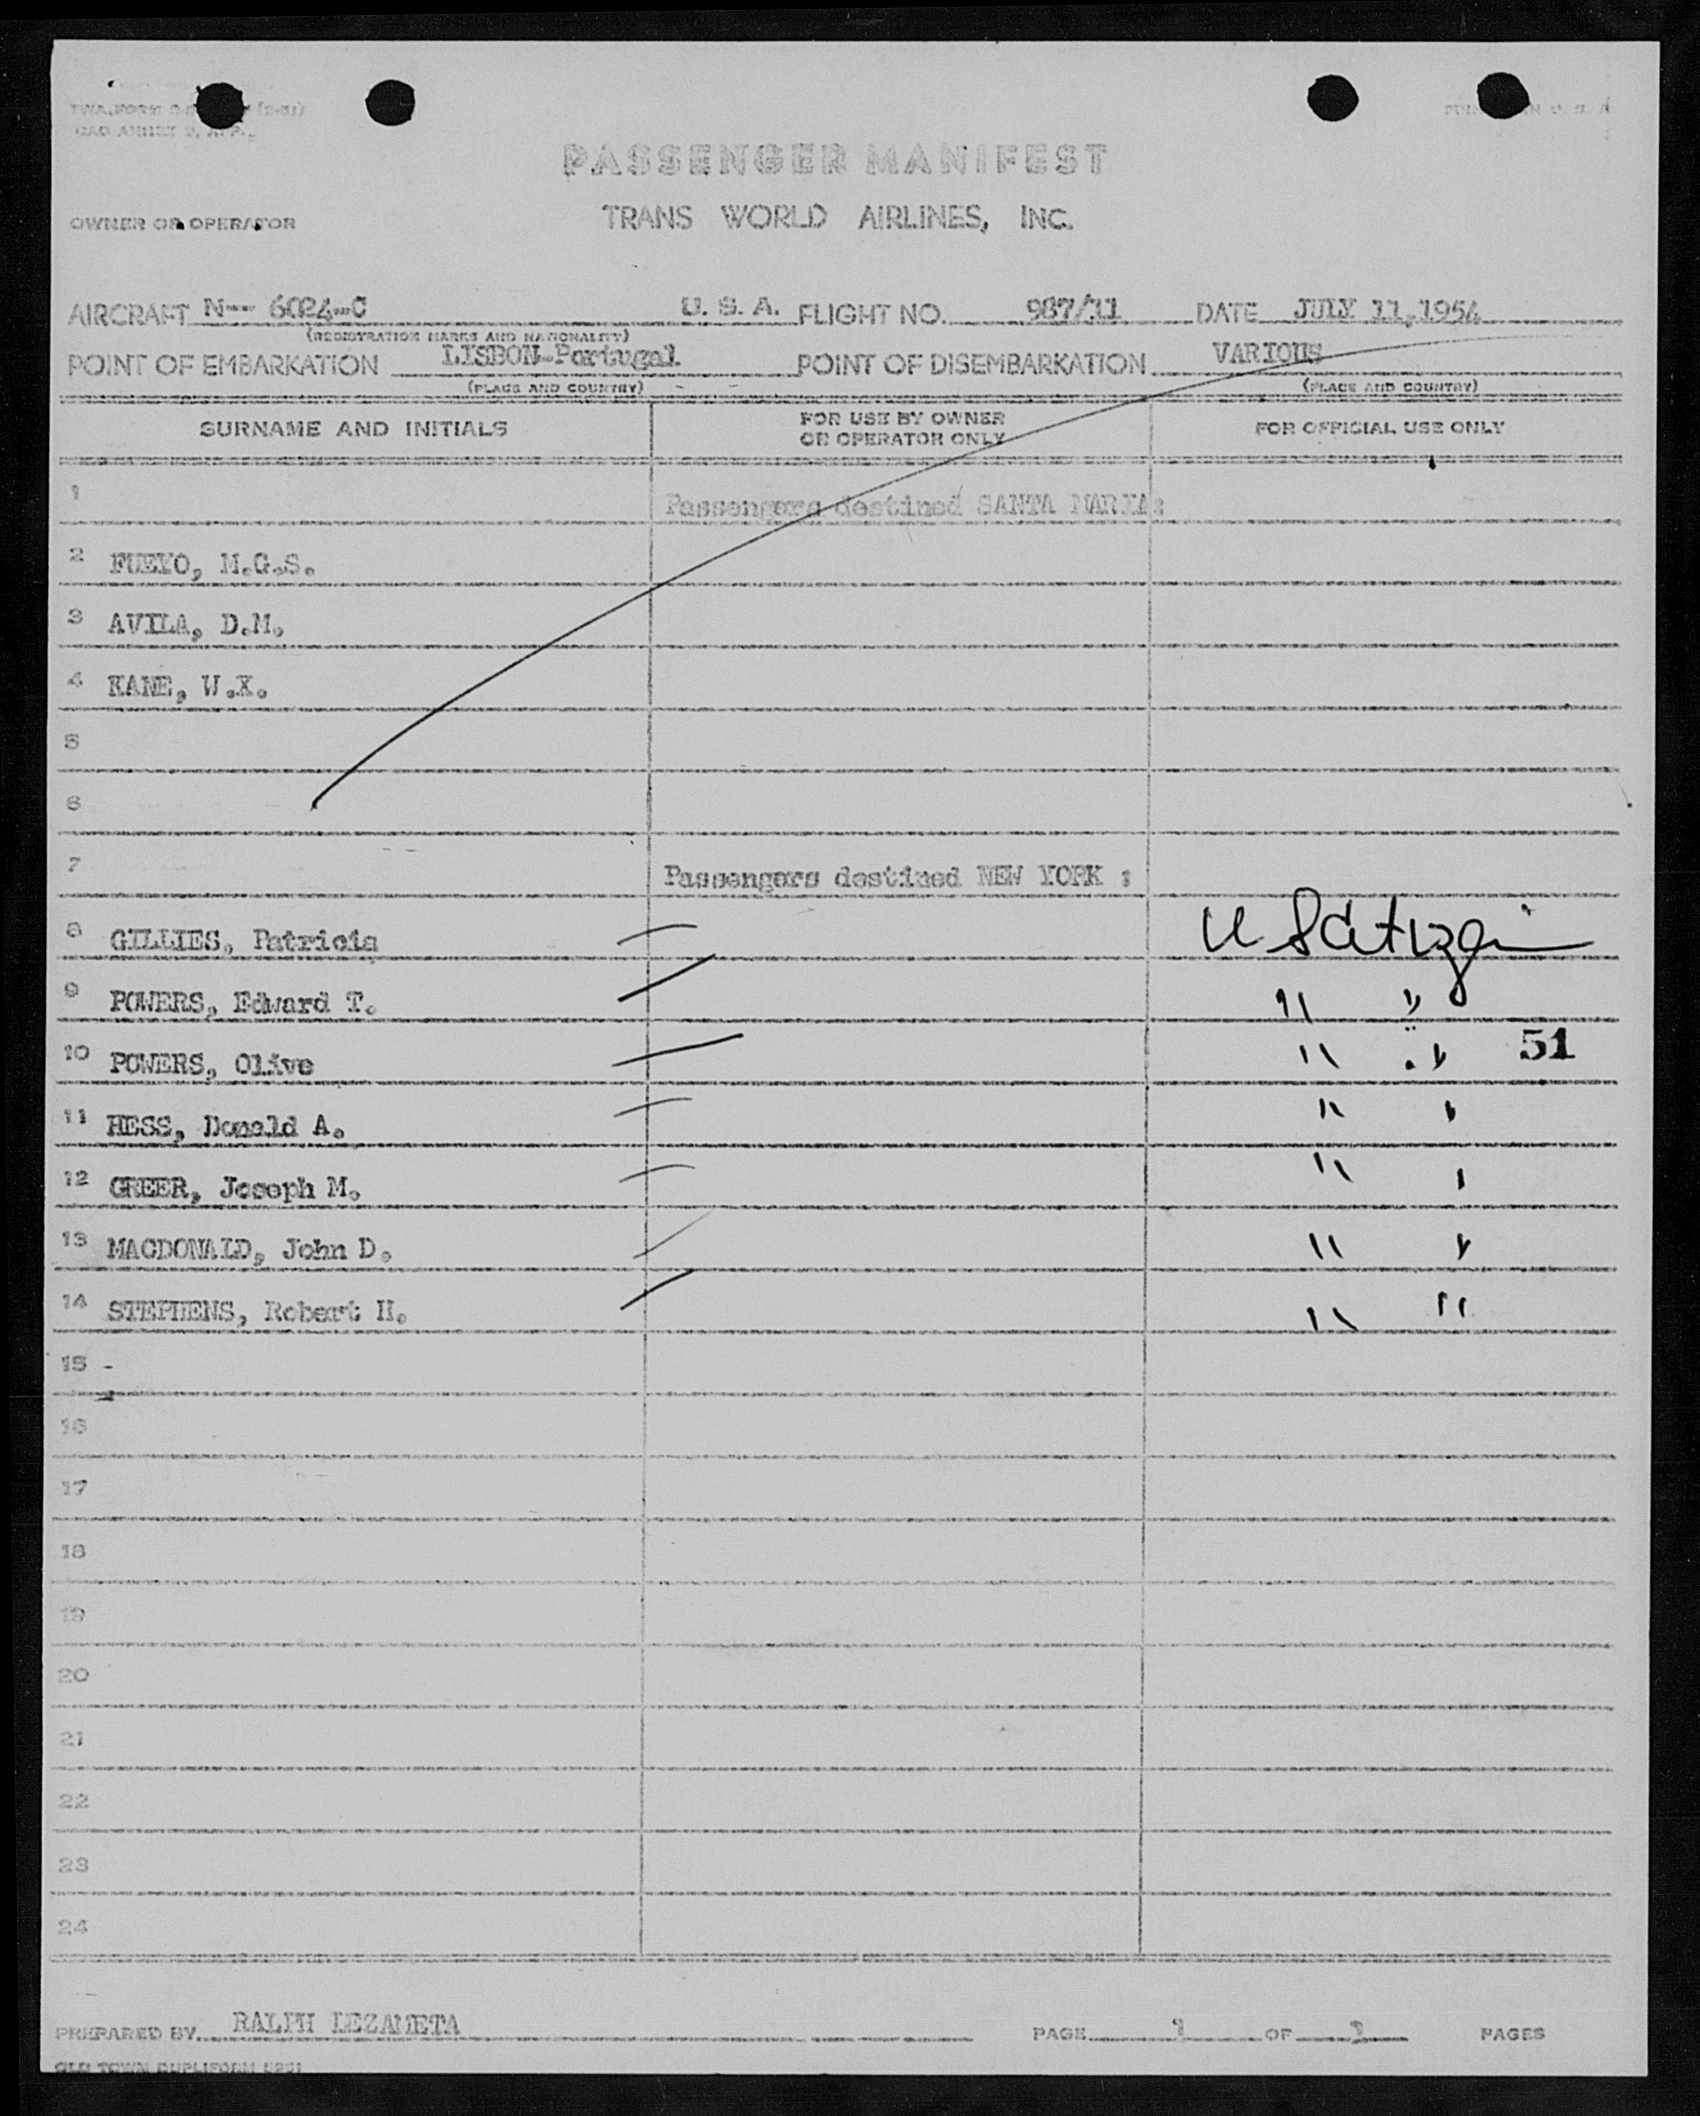 PASSENGER MANIFEST
OWNER OR OPERATOR TRANS WORLD AIRLINES, INC.
AIRCRAFT N-- 6024-C U. S. A. FLIGHT NO. 987/11 DATE JULY 11, 1954
(REGISTRATION MARKS AND NATIONALITY)
POINT OF EMBARKATION LISBON-Portugal POINT OF DISEMBARKATION VARIOUS
(PLACE AND COUNTRY) (PLACE AND COUNTRY)
SURNAME AND INITIALS FOR USE BY OWNER OR OPERATOR ONLY FOR OFFICIAL USE ONLY
1 Passengers destined SANTA MARIA:
2 FUEYO, M.G.S.
3 AVILA, D.M.
4 KANE, W.X.
5
6
7 Passengers destined NEW YORK :
8 GILLIES, Patricia
9 POWERS, Edward T. " "
10 POWERS, Olive " " 51
11 HESS, Donald A. " "
12 GREER, Joseph M. " "
13 MACDONALD, John D. " "
14 STEPHENS, Robert H. " "
15 -
16
17
18
19
20
21
22
23
24
PREPARED BY RALPH LEZAMETA PAGE 1 OF PAGES
OLD TOWN DUPLIFORM